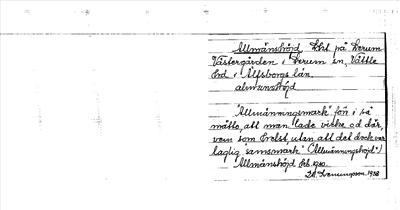 Allmänshöjd Ort på Lerum
Västergården i Lerum sn, Vättle
hd i Älfsborgs län.
almanshöjd
"Allmänningsmark" för i så
måtto, att man lade virke o d där,
vem som hälst, utan att det dock var
laglig samsmark (Allmänningshöjd")
Allmänshöjd feb. 1910.
1938